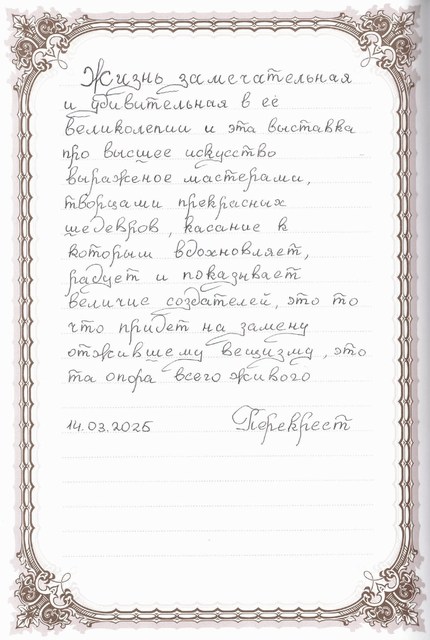 Жизнь замечательная
и удивительная в её
великолепии и эта выставка
про высшее искусство
выраженое мастерами,
творцами прекрасных
шедевров, касание к
которым вдохновляет,
радует и показывает
величие создателей, это то
что придет на замену
отжившему вещизму, это
та опора всего живого
14.03.2025 Перекрест